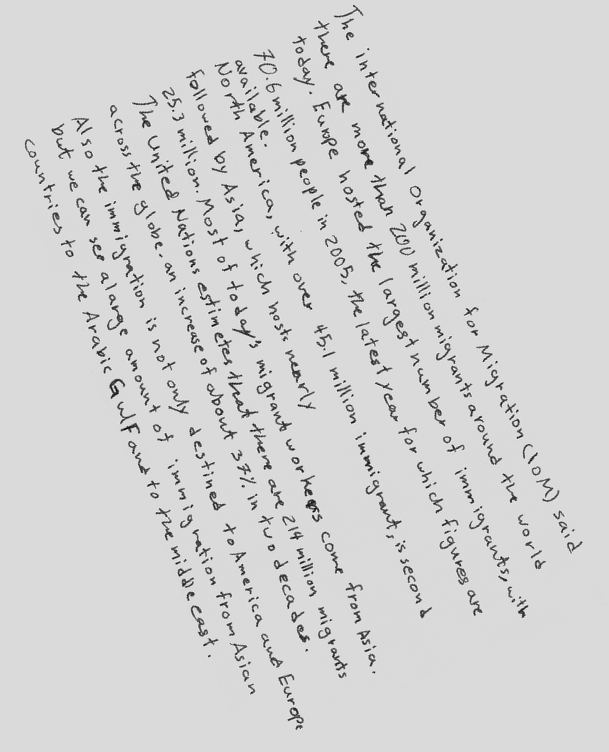 The international Organization for Migration (IOM) said
there are more than 200 million migrants around the world
today. Europe hosted the largest number of immigrants, with
70.6 million people in 2005, the latest year for which figures are
available.
North America, with over 45.1 million immigrants, is second
followed by Asia, which hosts nearly
25.3 million. Most of today's migrant workeers come from Asia.
The United Nations estimetes that there are 214 million migrants
across the globe. an increase of about 37% in two decades.
Also the immigration is not only destined to America and Europe
but we can see a large amount of immigration from Asian
countries to the Arabic Gulf and to the middle east.